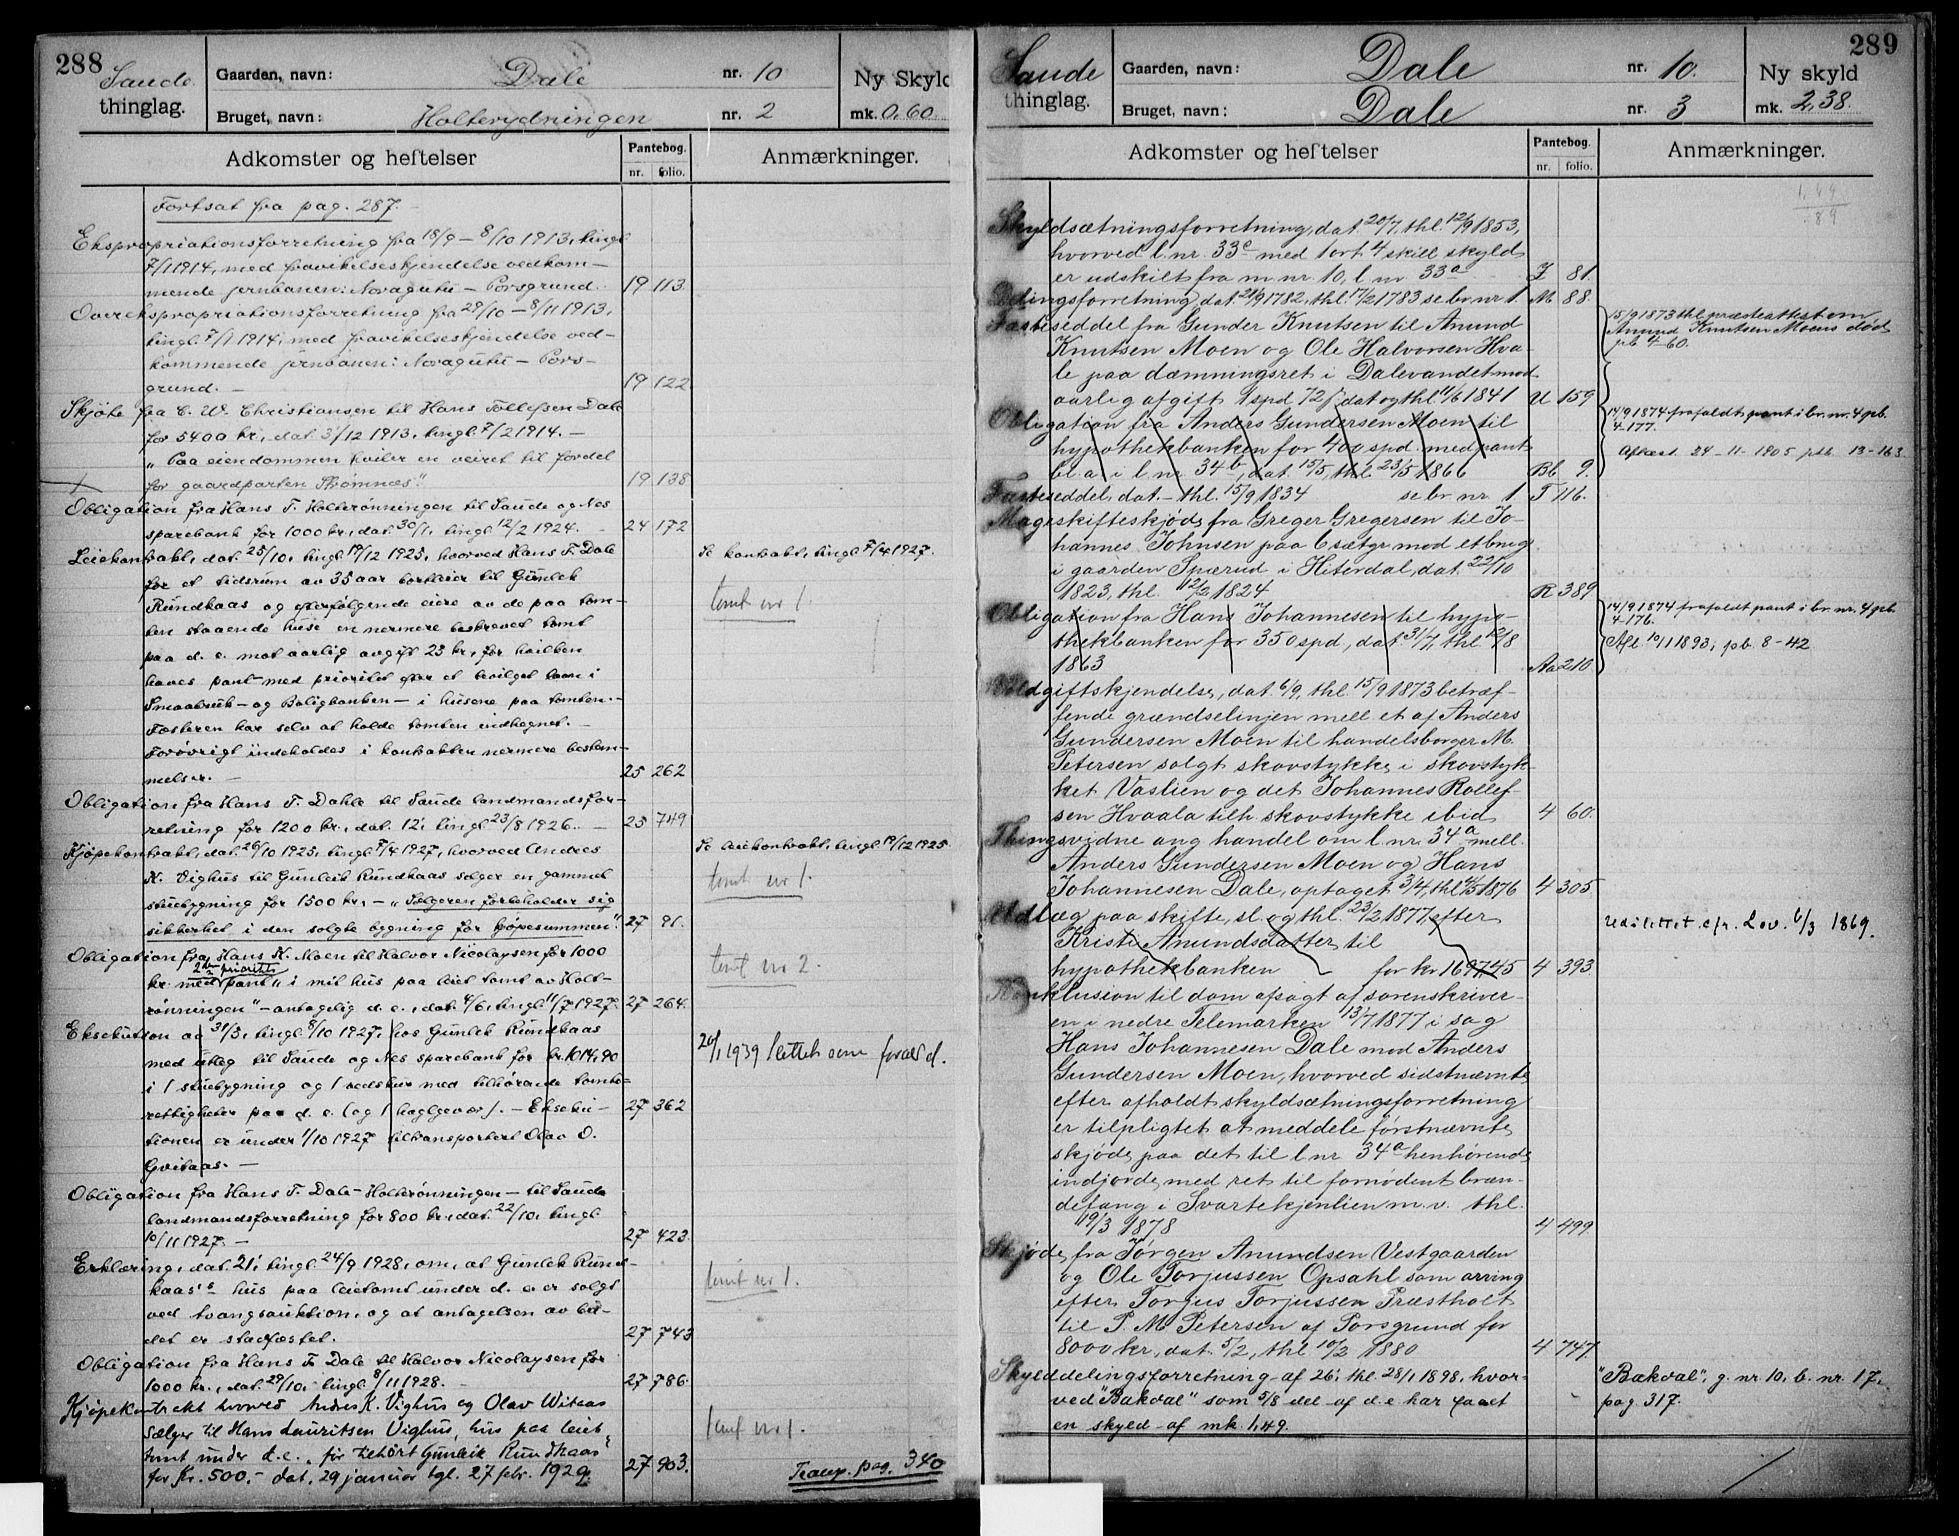 288
Saude
thinglag.
Gaarden, navn: Dale nr. 10
Bruget, navn: Holterydningen nr. 2
Ny Skyld
mk. 0,60
Adkomster og heftelser
Pantebog.
nr. folio.
Anmærkninger.
Fortsat fra pag. 287.
Ekspropriationsforretning fra 18/9 – 8/10 1913, tingl.
7/1 1914, med fravikelseskjendelse vedkom-
mende jernbanen: Noragutu – Porsgrund. 19 113
Overekspropriationsforretning fra 29/10 – 8/11 1913,
tingl. 7/1 1914, med fravikelseskjendelse ved-
kommende jernbanen: Noragutu – Pors-
grund. – 19 122
Skjøte fra C. W. Christiansen til Hans Tollefsen Dale
for 5400 kr., dat. 31/12 1913, tingl. 7/2 1914. –
„ Paa eiendommen hviler en veiret til fordel
for gaardparten Strømnæs". 19 138
Obligation fra Hans T. Holterønningen til Saude og Nes
sparebank for 1000 kr., dat. 30/1, tingl. 12/2 1924. – 24 172
Leiekontrakt, dat. 25/10, tingl. 19/12 1925, hvorved Hans T. Dale
for et tidsrum av 35 aar bortleier til Gunlek
Rundkaas og efterfølgende eiere av de paa tom-
ten staaende huse en nermere beskrevet tomt
paa d. e. mot aarlig avgift 25 kr., for hvilken
haves pant med prioritet efter et bevilget laan i
Smaabruk- og Boligbanken – i husene paa tomten. –
Fæsteren har selv at holde tomten indhegnet. –
Forøvrigt indeholdes i kontrakten nermere bestem-
melser. – 25 262
Se kontrakt, tingl. 7/4 1927.
tomt nr 1.
Obligation fra Hans T. Dahle til Saude landmandsfor-
retning for 1200 kr., dat. 12, tingl. 23/8 1926. – 25 749
Kjøpekontrakt, dat. 26/10 1925, tingl. 7/4 1927, hvorved Anders
K. Vighus til Gunleik Rundkaas selger en gammel
stuebygning for 1500 kr. – „ Selgeren forbeholder sig
sikkerhet i den solgte bygning for kjøpesummen." 27 91.
Se leiekontrakt, tingl. 19/12 1925
tomt nr 1.
Obligation fra Hans K. Moen til Halvor Nicolaysen for 1000
kr. med 2den prioritets pant „ i mit hus paa leiet tomt av Holt-
rønningen" – antagelig d. e., dat. 4/6, tingl. 11/7 1927. 27 264.
tomt nr 2.
Eksekution av 31/5, tingl. 8/10 1927, hos Gunlek Rundkaas
med utleg til Saude og Nes sparebank for kr. 1014,90
i 1 stuebygning og 1 vedskur med tilhørende tomte-
rettigheter paa d. e. (og 1 haglgevær). – Ekseku- 27 362
tionen er under 1/10 1927 tiltransportert Olav O.
Gvitaas. –
20/1 1939 slettet som forældet.
Obligation fra Hans T. Dale – Holterønningen – til Saude
landmandsforretning for 800 kr., dat. 22/10, tingl.
10/11 1927. – 27 423.
Erklæring, dat. 21, tingl. 24/9 1928, om, at Gunlek Rund-
kaas's hus paa leietomt under d. e. er solgt
ved tvangsauktion, og at antagelsen av bu-
det er stadfæstet. 27 743
tomt nr 1.
Obligation fra Hans T. Dale til Halvor Nicolaysen for
1000 kr., dat. 29/10, tingl. 8/11 1928. 27 786.
Kjøpekontrakt hvorved Anders K. Vighus og Olav Witaas
sælger til Hans Lauritsen Vighus, hus paa leiet
tomt under d.e. „ før tilhørt Gunleik Rundkaas"
for kr. 500,- dat. 29 januar tgl. 27 febr. 1929. 27 903.
tomt nr 1.
Transp. pag. 340
289
Saude
thinglag.
Gaarden, navn: Dale nr. 10.
Bruget, navn: Dale nr. 3
Ny skyld
mk. 2,38.
Adkomster og heftelser
Pantebog.
nr. folio.
Anmærkninger.
1,49
89
Skyldsætningsforretning, dat. 20/7, thl. 12/9 1853,
hvorved l. nr. 33c med 1 ort 4 skill skyld
er udskilt fra m. nr. 10, l. nr. 33a J 81.
Delingsforretning dat. 21/9 1782, thl. 17/2 1783 se br. nr 1. M 88.
Fæsteseddel fra Gunder Knutsen til Anund
Knutsen Moen og Ole Halvorsen Hva-
le paa dæmningsret i Dalevandet mod
aarlig afgift 1 spd 72 ß dat og thl 11/6 1841 U 159
15/9 1873 thl præsteattest om
Anund Knutsen Moens død
pb 4-60.
Obligation fra Anders Gundersen Moen til
hypothekbanken for 400 spd. med pant
bl. a. i l. nr. 34b, dat. 15/5, thl. 23/5 1866 Bb 9.
14/9 1874 frafaldt pant i br. nr. 4 pb.
4-177.
Afløst 24-11-1905 ptb. 13-163.
Fæsteseddel, dat. – thl. 15/9 1834 se br. nr 1 T 116.
Mageskifteskjøde fra Greger Gregersen til Jo-
hannes Johnsen paa 6 sætgr mod et brug
i gaarden Spærud i Hiterdal, dat. 22/10
1823, thl. 12/2 1824 R 389
Obligation fra Hans Johannesen til hypo-
thekbanken for 350 spd, dat. 31/7, thl 12/8
1863 Aa 210
14/9 1874 frafaldt pant i br. nr. 4 pb.
4-176.
Afl. 10/1 1893, pb. 8-42
Voldgiftskjendelse, dat. 6/9, thl. 15/9 1873 betræf-
fende grændselinjen mell et af Anders
Gundersen Moen til handelsborger M.
Petersen solgt skovstykke i skovstyk-
ket Vaslien og det Johannes Rollef-
sen Hvaala tilh. skovstykke ibid 4 60.
Thingsvidne ang handel om l. nr. 34a mell.
Anders Gundersen Moen og Hans
Johannesen Dale, optaget 3/4, thl 4/5 1876 4 305
Udlæg paa skifte, sl. og thl. 23/2 1877, efter
Kristi Anundsdatter til
hypothekbanken for kr 1697,45 4 393
Udslettet efr. Lov. 6/3 1869.
Konklusion til dom afsagt af sorenskriver-
en i nedre Telemarken 13/7 1877 i sag
Hans Johannesen Dale mod Anders
Gundersen Moen, hvorved sidstnævnte
efter afholdt skyldsætningsforretning
er tilpligtet at meddele førstnævnte
skjøde paa det til l. nr 34a henhørende
indjorde, med ret til fornødent bræn-
defang i Svartekjenlien m. v. thl.
19/3 1878 4 499.
Skjøde fra Jørgen Anundsen Vestgaarden
og Ole Torjussen Opsahl som arving
efter Torjus Torjussen Præstholt
til P. M. Petersen af Porsgrund for
8000 kr, dat. 5/2, thl 10/2 1880 4 747.
Skylddelingsforretning af 26, thl. 28/1 1898, hvor-
ved "Bakval" som 5/8 del af d. e har faaet
en skyld af mk. 1,49.
"Bakval", g. nr. 10, b. nr. 17.
pag. 317.